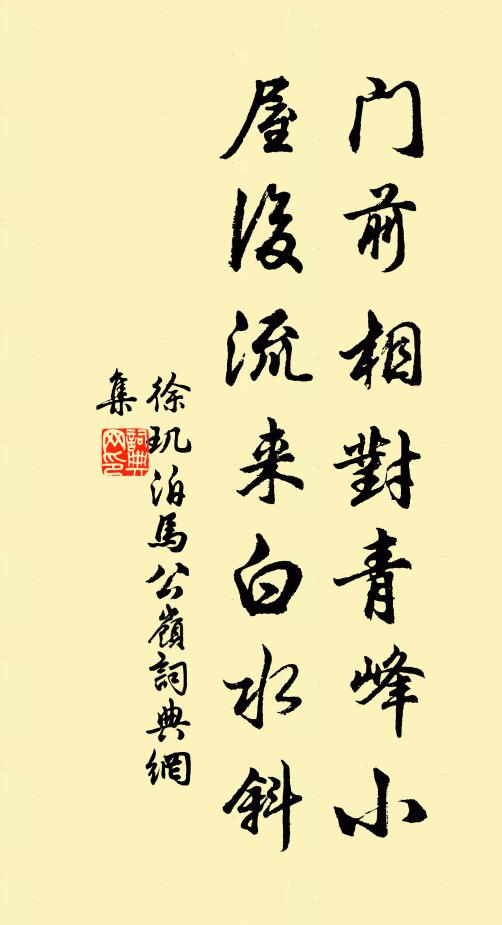 门前相對青峰小
屋後流来白水斜
徐玑泊馬公嶺詞典網
集
詞典
网印